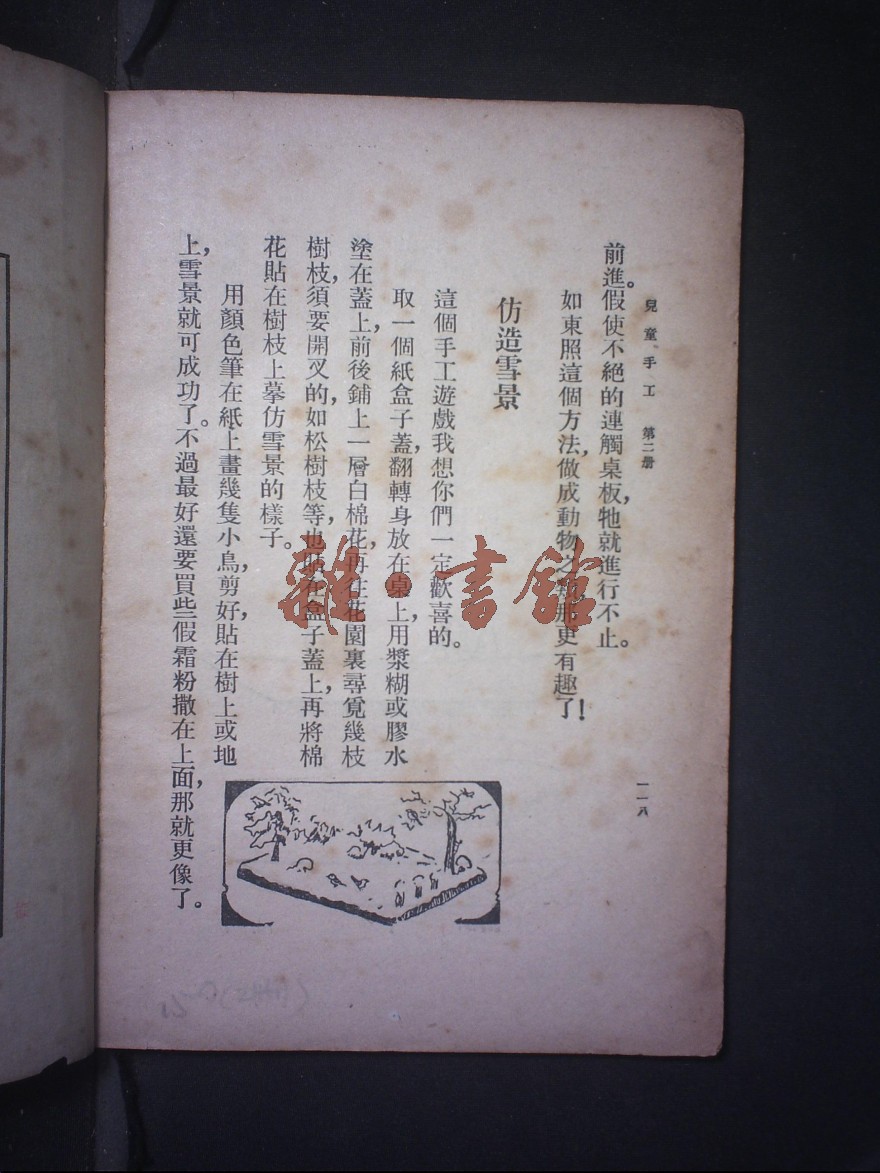 兒童手工 第二册
一一八
前進。假使不絕的連觸桌板,牠就進行不止。
如東照這個方法,做成動物之類,那更有趣了!
仿造雪景
這個手工遊戲我想你們一定歡喜的。
取一個紙盒子蓋,翻轉身放在桌上,用漿糊或膠水
塗在蓋上,前後鋪上一層白棉花,再在花園裏尋覓幾枝
樹枝,須要開叉的,如松樹枝等,也貼在盒子蓋上,再將棉
花貼在樹枝上摹仿雪景的樣子。
用顏色筆在紙上畫幾隻小鳥,剪好,貼在樹上或地
上,雪景就可成功了。不過最好還要買些假霜粉撒在上面,那就更像了。
雜·書館